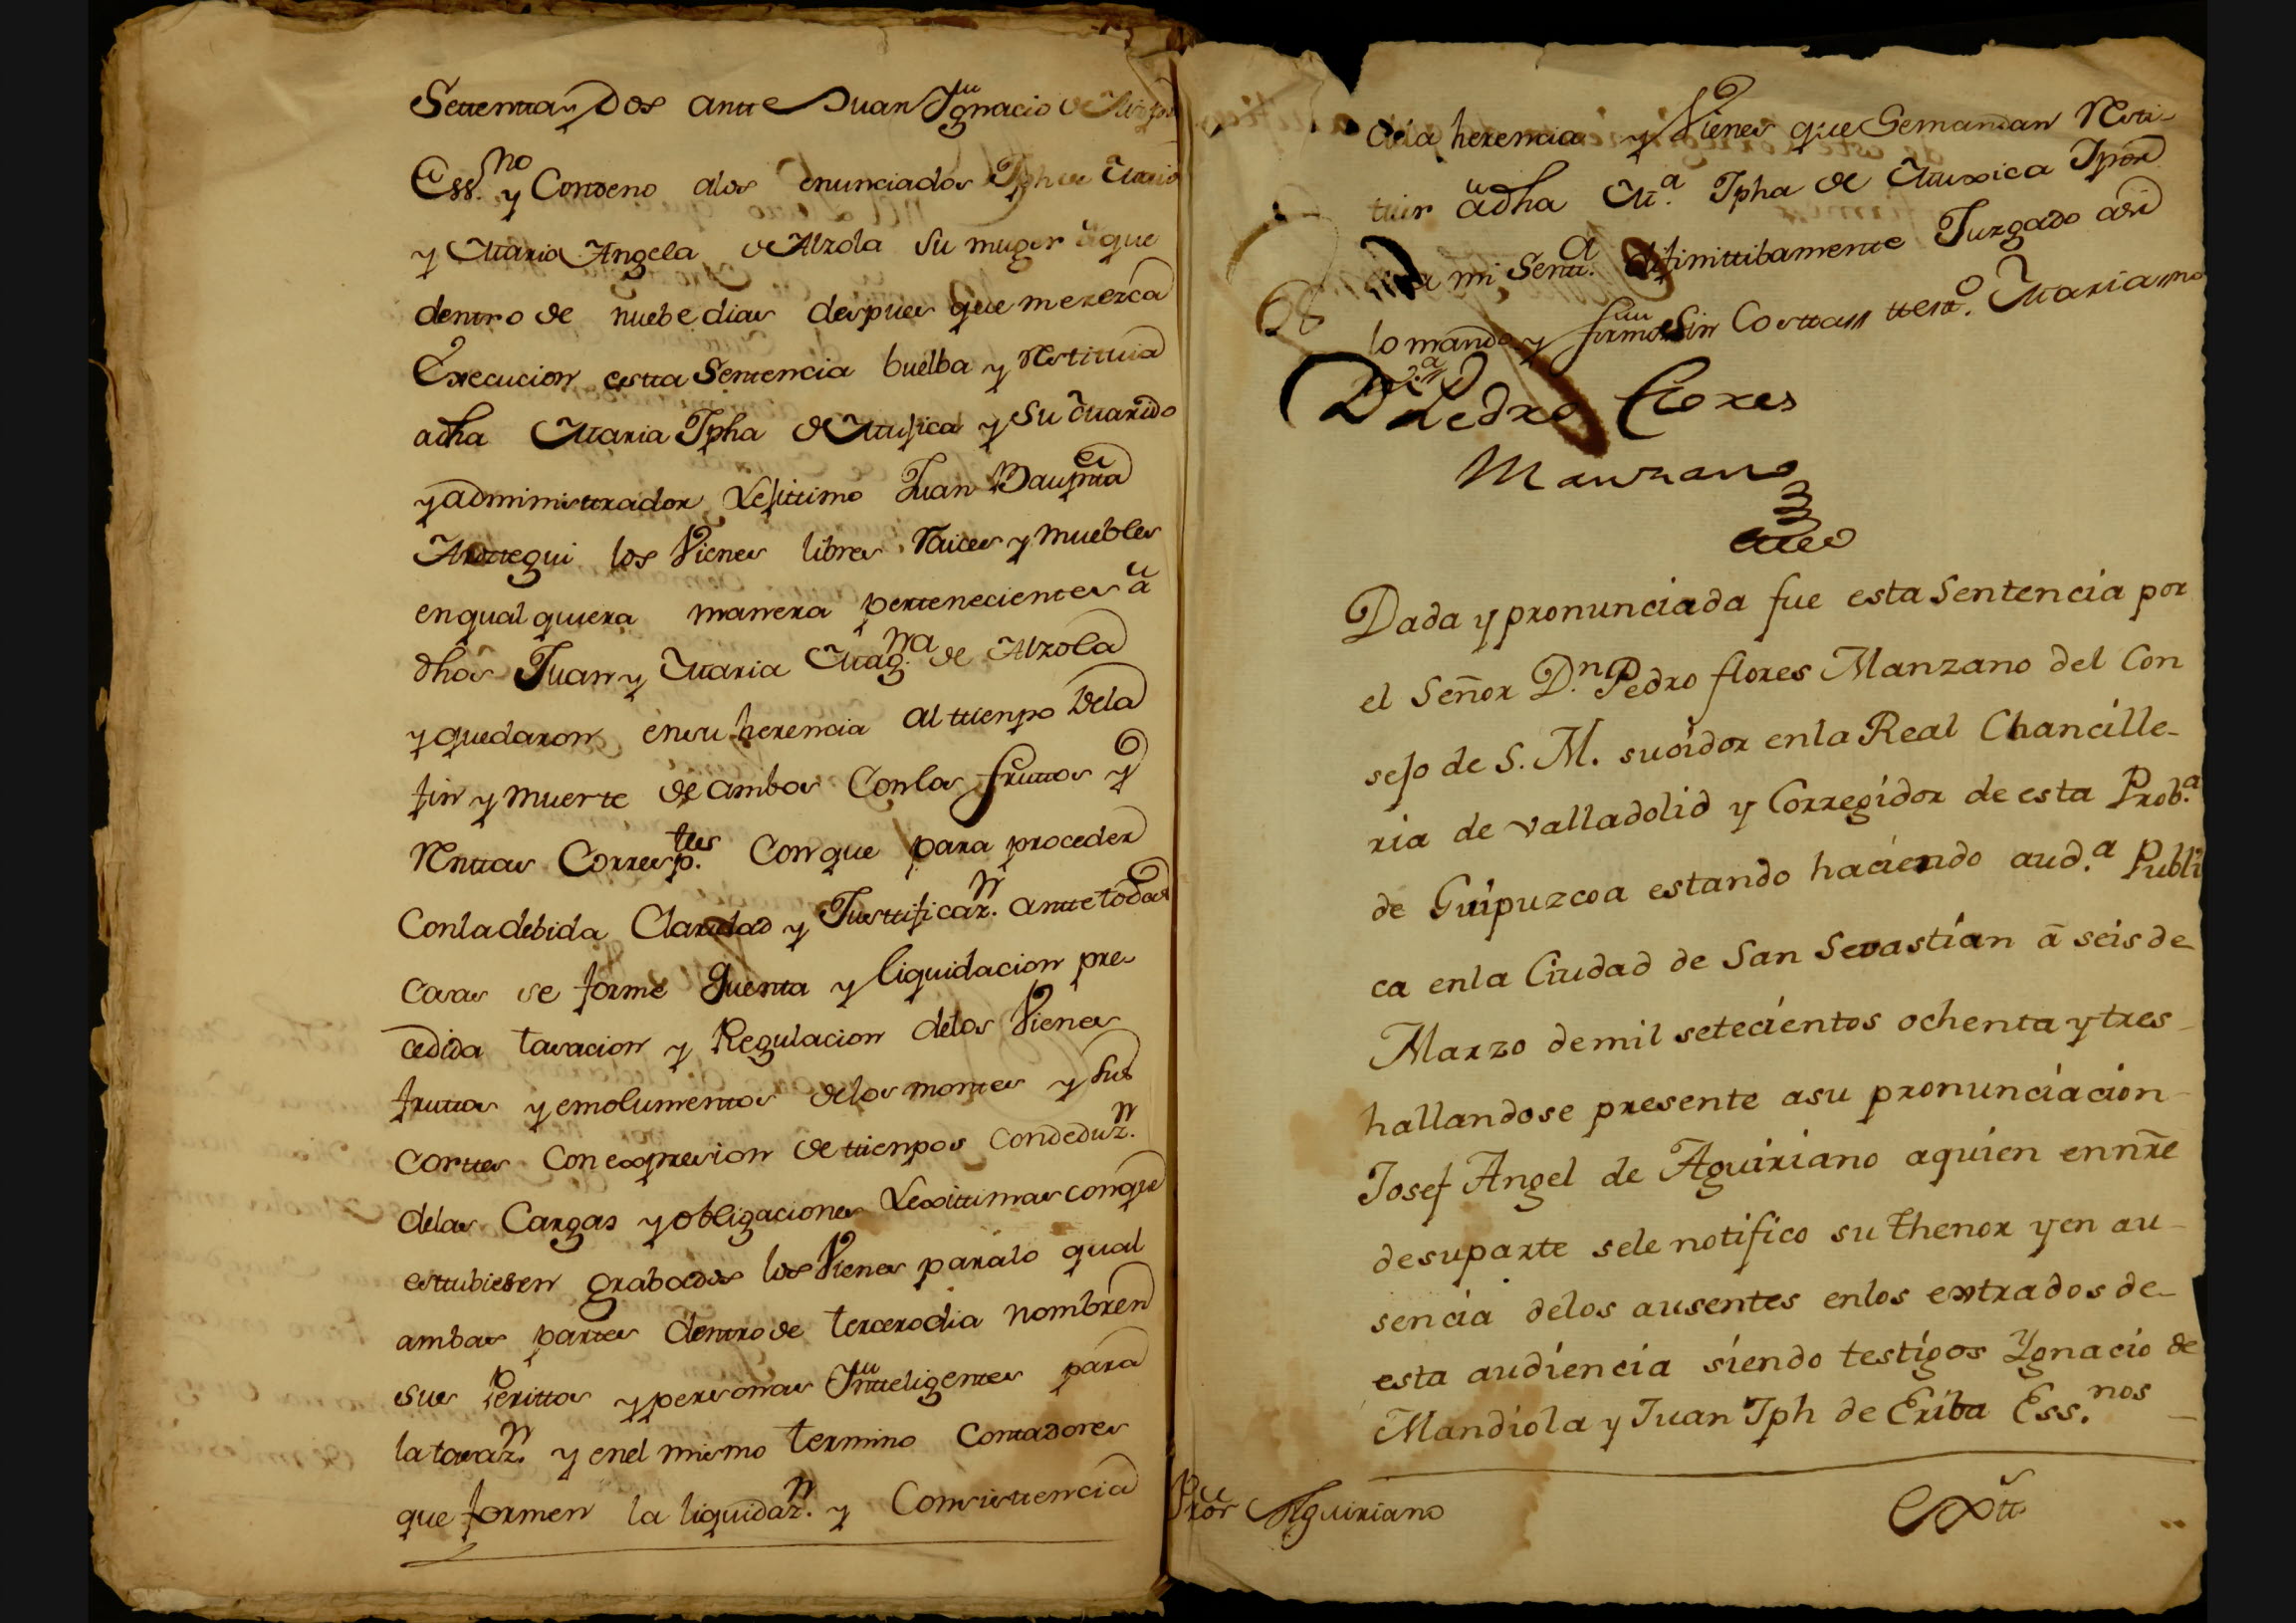 Settenta y Dos ante Juan Ygnacio de
Ess.no y Condeno alos enunciados Jph de
y Maria Angela de Alzola su muger a que
dentro de nuebe dias despues que merezca
Execucion esta Sentencia buelba y restituia
adha Maria Jpha de Mujica y su marido
y administrador Lejitimo Juan Bauptta
Arottegui los Vienes libres Raices y muebles
en qual quiera manera pertenecientes a
dhos Juan y Maria Mag.na de Alzola
y quedaron en su herencia al tienpo dela
fin y muerte de ambos Con los fruttos y
Renttas Corresp.ttes Con que para proceder
Con la debida Claridad y Justtificaz.n ante todas
cosas se forme quenta y liquidacion pre-
cedida tasacion y Regulacion delos Vienes
fruttos y emolumentos delos montes y sus
corttes con expresion de tienpos con deduz.n
delas Cargas y obligaciones Lexittimas con que
esttubiesen grabados los Vienes para lo qual
ambas partes dentro de tercero dia nombren
sus Perittos y personas Ynteligentes para
la tasaz.n y en el mismo termino Contadores
que formen la liquidaz.n y Consisttencia
dela herencia y Vienes que se mandan Resti-
tuir adha M.a Jpha de Muxica Y por
mi Sentt.a difinittibamente Juzgado asi
lo mando y firmo Sin Costtas
D.n Pedro Flores
Manzano
Dada y pronunciada fue esta Sentencia por
el Señor D.n Pedro flores Manzano del Con
sejo de S. M. su oidor en la Real Chancille-
ria de valladolid y Corregidor de esta Prob.a
de Guipuzcoa estando haciendo aud.a Publi
ca en la Ciudad de San Sevastian a seis de
Marzo de mil setecientos ochenta y tres
hallandose presente asu pronunciacion
Josef Angel de Aguiriano aquien en nre
de su parte sele notifico su thenor y en au-
sencia delos ausentes en los extrados de
esta audiencia siendo testigos Ygnacio de
Mandiola y Juan Jph de Eriba Ess.nos
Pror Aguiriano